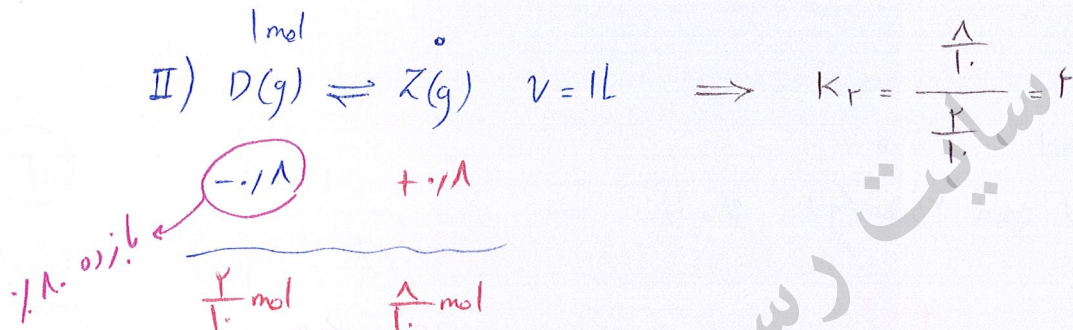 1 mol ۰
II) D(g) ⇌ Z(g) V = 1L ⟹ K۲ = (۸/۱۰)/(۲/۱۰) = ۴
-۰/۸ +۰/۸
بازده ۸۰٪
۲/۱۰ mol ۸/۱۰ mol
سایت